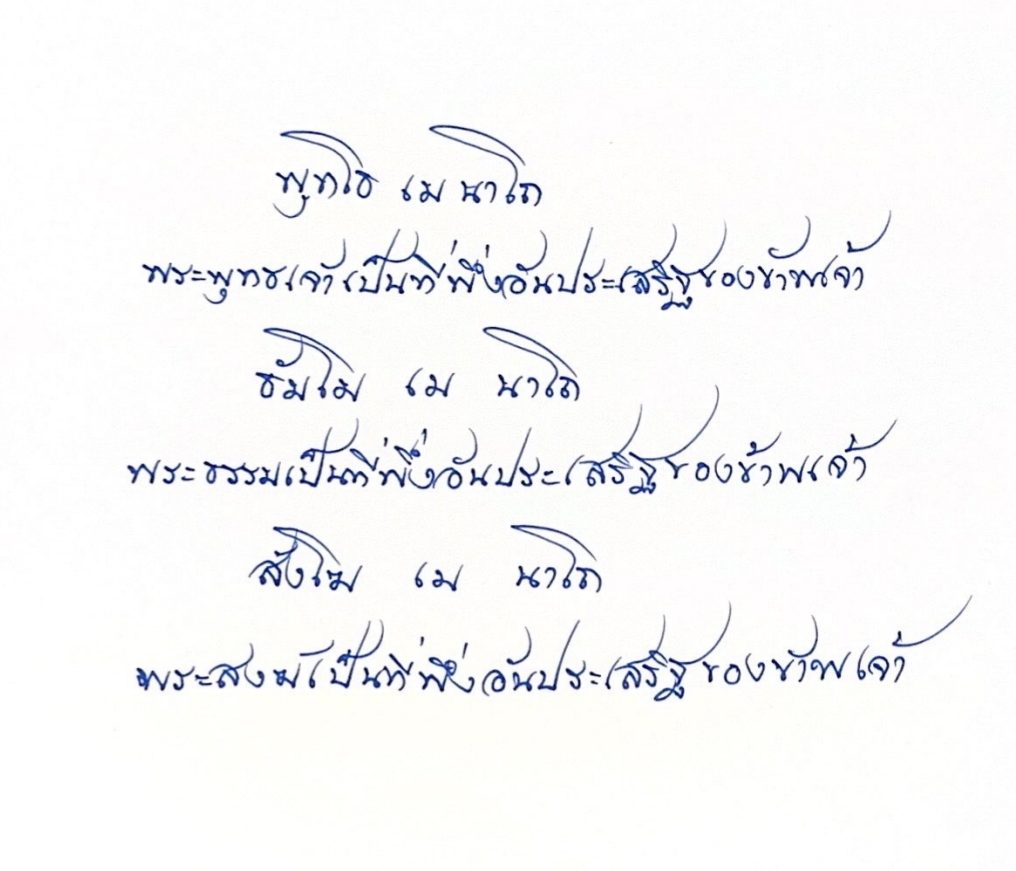 พุทโธ เม นาโถ
พระพุทธเจ้าเป็นที่พึ่งอันประเสริฐของข้าพเจ้า
ธัมโม เม นาโถ
พระธรรมเป็นที่พึ่งอันประเสริฐของข้าพเจ้า
สังโฆ เม นาโถ
พระสงฆ์เป็นที่พึ่งอันประเสริฐของข้าพเจ้า